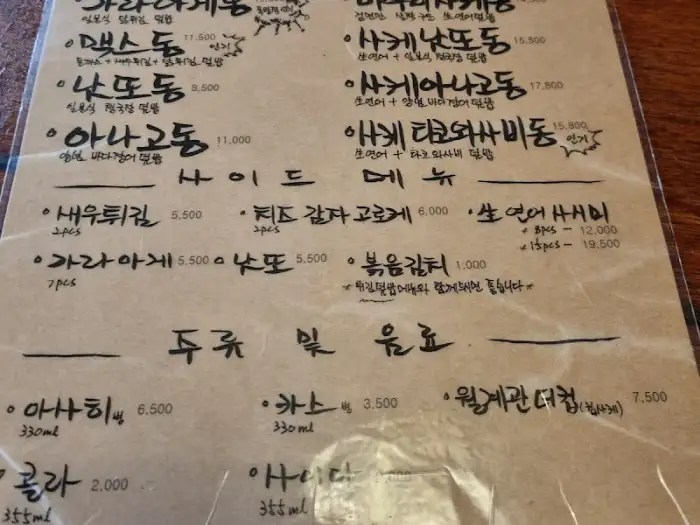 가라아게동
일본식 닭튀김 덮밥
생연어덮밥
맥스동 11,500 인기
돈까스 + 새우튀김 + 닭튀김 덮밥
사케낫또동 15,500
生연어 + 일본식 청국장 덮밥
낫또동 9,500
일본식 청국장 덮밥
사케아나고동 17,800
生연어 + 양념 바다장어 덮밥
아나고동 11,000
양념 바다장어 덮밥
사케 타코와사비동 15,800 인기
生연어 + 타코와사비 덮밥
사이드 메뉴
새우튀김 5,500
2pcs
치즈 감자 고로케 6,000
2pcs
生 연어 사시미
* 8pcs - 12,000
* 15pcs - 19,500
가라아게 5,500
7pcs
낫또 5,500
볶음김치 1,000
* 튀김덮밥 메뉴와 함께드시면 좋습니다 *
주류 및 음료
아사히 병 6,500
330ml
카스 병 3,500
330ml
월계관 더컵 (컵사케) 7,500
콜라 2,000
355ml
사이다
355ml